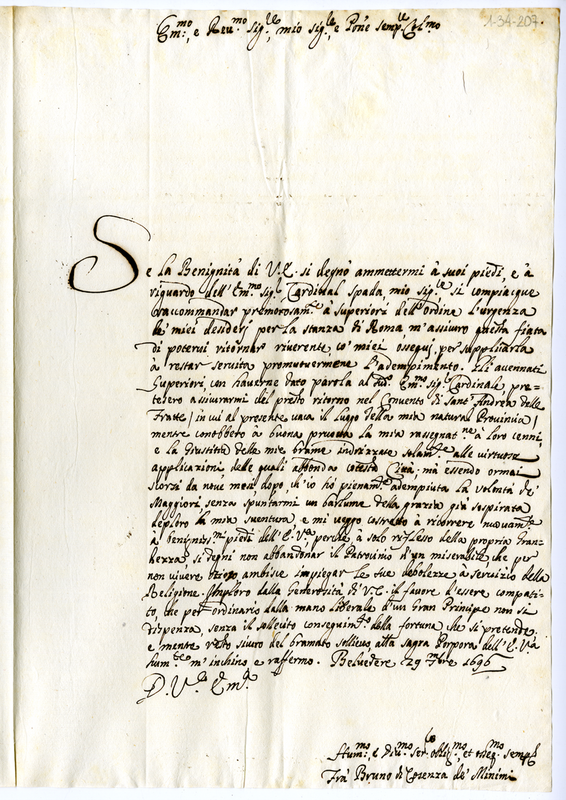 1-34-207.
Em:mo, e Reu.mo Sig.re, mio sig.re, e Pñe semp.e
Se la Benignità di V.E. si degnò ammettermi à suoi piedi, e à
riguardo dell'Em.mo sig.r Cardinal Spada mio sig.re si compiacque
raccommandar premorosam.te à superiori dell'Ordine l'urgenza
de' miei desiderj per la stanza di Roma m'assicuro questa fiata
di potervi ritornar riverente, co' miei ossequj, per supplicarla
à restar servita promuovermene l'adempimento. Gli accennati
Superiori, con haverne dato parola al sud.o Em.o sig.r Cardinale pre=
tesero assicurarmi del presto ritorno nel Convento di Sant'Andrea delle
Fratte / in cui al presente vaca il luogo della mia natural Provincia /
mentre conobbero à buona pruova la mia rassegnat.ne à loro cenni,
e la giustitia delle mie brame indrizzate solam.te alle virtuose
applicazioni, delle quali abbonda cotesta Città. mà essendo ormai
scorsi da nove mesi dopo, ch'io hò pienam.te adempiuta la volontà de'
Maggiori, senza spuntarmi un barlume della grazia già sospirata
deploro la mia sventura, e mi veggo costretto à ricorrere nuovam.te
a benigniss.mi piedi dell'E.V.a perche, à solo riflesso della propria gran=
dezza, si degni non abbandonar il Patrocinio d'un miserabile, che per
non vivere otioso, ambisce impiegar le sue debolezze à servizio della
Religione. Imploro dalla Generosità di V.E. il favore d'essere compati=
to, che per ordinario dalla mano liberale d'un Gran Principe non si
dispenza, senza il sollecito conseguim.to della fortuna che si pretende,
e mentre resto sicuro del bramato sollievo, alla sagra Porpora dell'E.V.a
hum.te m'inchino e raffermo. Belvedere 29 1696
D.V.E. Em.a
Hum:mo e Div.mo ser.re oblig.mo, et osseq.mo semp.e
Frà Bruno di Cosenza de' Minimi